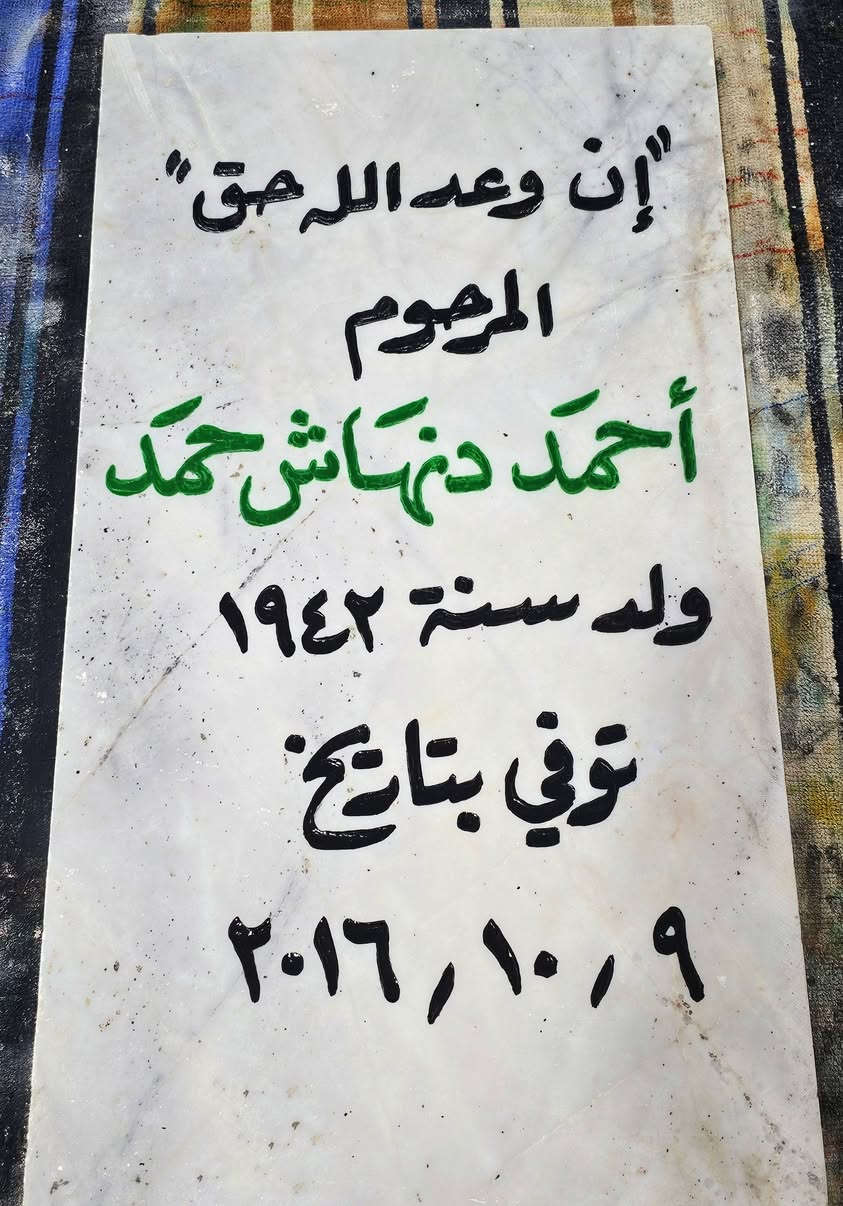 "إن وعد الله حق"
المرحوم
أحمد دنهاش حمد
ولد سنة ١٩٤٢
توفي بتاريخ
٩ / ١٠ / ٢٠١٦